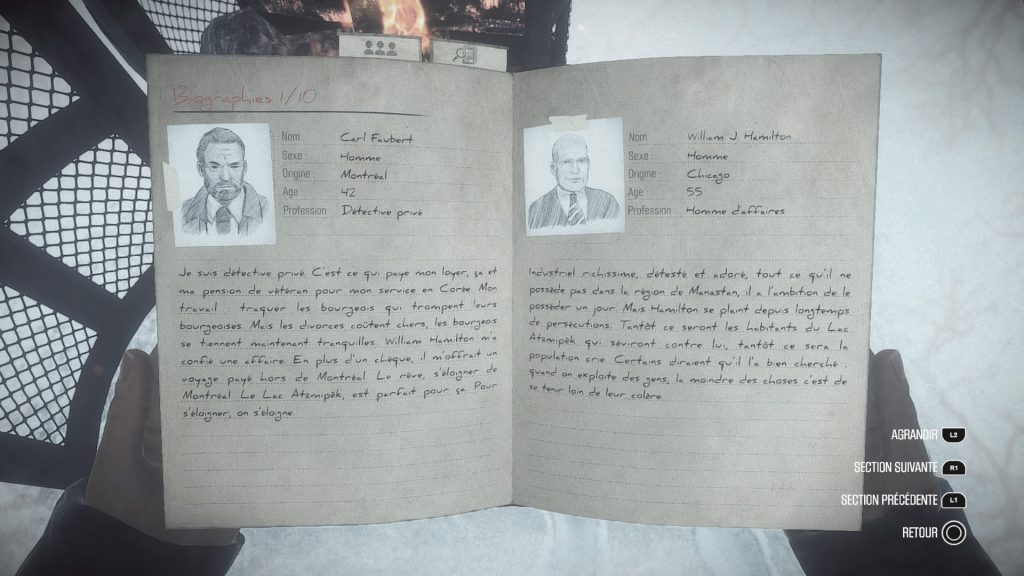 Biographies 1/10
Nom Carl Faubert
Sexe Homme
Origine Montréal
Age 42
Profession Détective privé
Je suis détective privé. C'est ce qui paye mon loyer, ça et
ma pension de vétéran pour mon service en Corée Mon
travail : traquer les bourgeois qui trompent leurs
bourgeoises. Mais les divorces coûtent chers, les bourgeois
se tiennent maintenant tranquilles. William Hamilton m'a
confié une affaire. En plus d'un chèque, il m'offrait un
voyage payé hors de Montréal. Le rêve, s'éloigner de
Montréal. Le Lac Atamipëk, est parfait pour ça. Pour
s'éloigner, on s'éloigne.
Nom William J. Hamilton
Sexe Homme
Origine Chicago
Age 55
Profession Homme d'affaires
Industriel richissime, détesté et adoré, tout ce qu'il ne
possède pas dans la région de Manastan, il a l'ambition de le
posséder un jour. Mais Hamilton se plaint depuis longtemps
de persécutions. Tantôt ce seront les habitants du Lac
Atamipëk qui séviront contre lui, tantôt ce sera la
population crie. Certains diraient qu'il l'a bien cherché :
quand on exploite des gens, la moindre des choses c'est de
se tenir loin de leur colère.
AGRANDIR L2
SECTION SUIVANTE R1
SECTION PRÉCÉDENTE L1
RETOUR